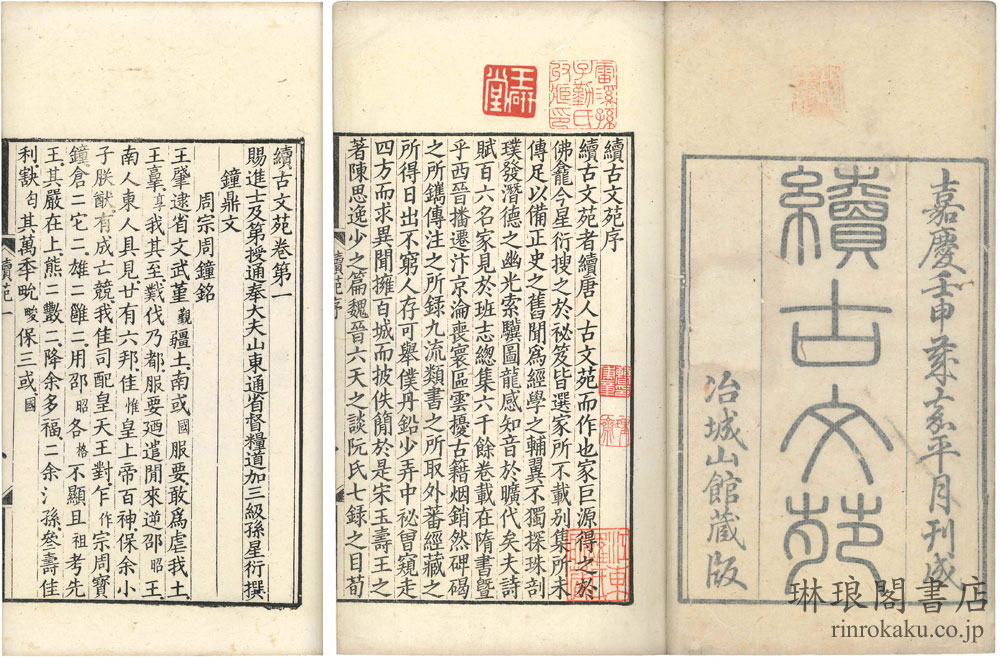 嘉慶壬申平月刊成
續古文苑
冶城山館藏版
雷溪孫
子勤氏
續古文苑序
續古文苑者續唐人古文苑而作也家巨源得之於
佛龕今星衍搜之於祕笈皆選家所不載別集所未
傳足以備正史之舊聞爲經學之輔翼不獨探珠剖
璞發潛德之幽光索驥圖龍感知音於曠代矣夫詩
賦百六名家見於班志總集六千餘卷載在隋書曁
乎西晉播遷汴京淪喪寰區雲擾古籍烟銷然碑碣
之所鐫傳注之所録九流類書之所取外蕃經藏之
所得日出不窮人存可舉僕丹鉛少弄中祕曾窺走
四方而求異聞擁百城而披佚簡於是宋玉壽王之
著陳思逸少之篇魏晉六天之談阮氏七録之目荀
續苑序
續古文苑卷第一
賜進士及第授通奉大夫山東通省督糧道加三級孫星衍撰
鐘鼎文
周宗周鐘銘
王肇遹省文武堇覲疆土南或國服要敢爲虐我土
王享我其至伐乃都服要廼遣閒來逆邵昭王
南人東人具見廿有六邦隹惟皇上帝百神保余小
子朕猷有成亡競我隹司配皇天王對乍作宗周寶
鐘倉二它二雄二雝二用邵昭各格不顯且祖考先
王其嚴在上熊二數二降余多福二余孫參壽佳
利其萬年畯保三或國
續苑一
琳琅閣書店
rinrokaku.co.jp